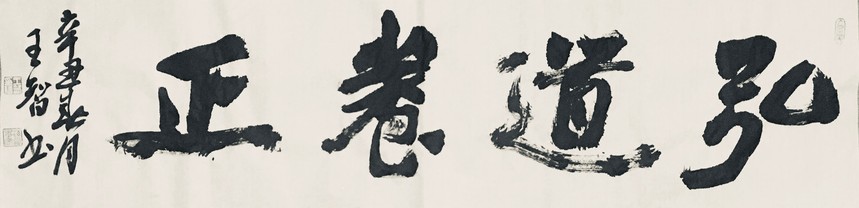 弘道養正
辛丑春月
王智书